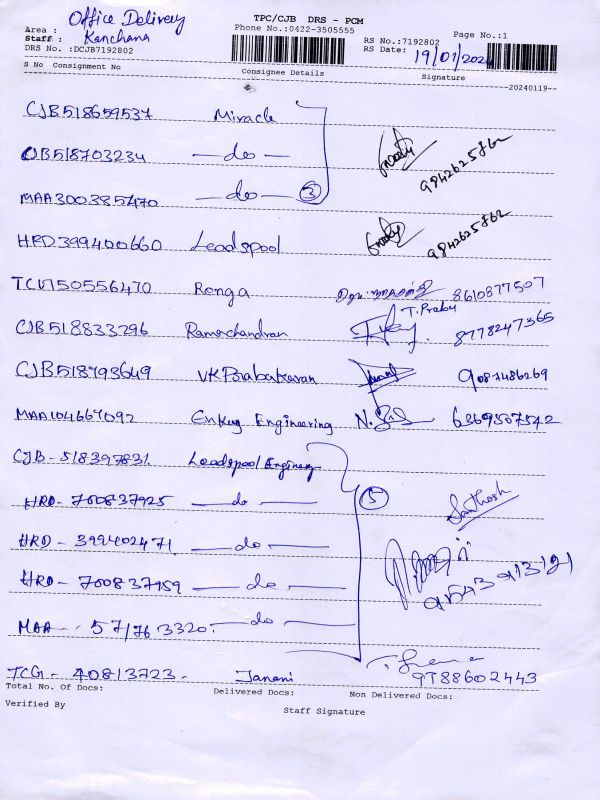 Office Delivery
TPC/CJB DRS - PCM
Area :
Phone No.:0422-3505555
Page No.:1
Staff : Kanchana
RS No.:7192802
DRS No. :DCJB7192802
RS Date: 19/01/2024
S No Consignment No Consignee Details Signature
--20240119--
CJB518659537 Miracle
CJB518703234 —do—
9842625862
MAA300385470 —do— 3
HRD399400660 Leadspool 9842625862
TCU150556470 Renga 8610877507
T. Prabu
CJB518833296 Ramachandran 8778247365
CJB518793649 VK Prabakaran 9087486269
MAA104667092 Enkay Engineering 6369507542
CJB-518397831 Leadspool Enginery
HRD-700837925 —do— 5
Santhosh
HRD-399402471. —do—
HRD-700837959 —do—
MAA-57/763320. —do—
TCG-40813723. Janani 9788602443
Total No. Of Docs: Delivered Docs: Non Delivered Docs:
Verified By
Staff Signature